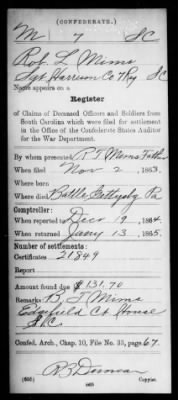 (CONFEDERATE.)
M 7 SC
Rob. L Mims
Sgt Harrison Co 7 Reg SC
Name appears on a
Register
of Claims of Deceased Officers and Soldiers from
South Carolina which were filed for settlement
in the Office of the Confederate States Auditor
for the War Department.
By whom presented R T Mims Father
When filed Nov 2, 1863.
Where born
Where died Battle Gettysbg Pa
Comptroller:
When reported to Decr 19, 1864.
When returned Jany 13, 1865.
Number of settlements:
Certificates 21849
Report
Amount found due $131.70
Remarks: B. T Mims
Edgefield Ct House
S.C.
Confed. Arch., Chap. 10, File No. 33, page 67.
R B Duncan
(635) Copyist.